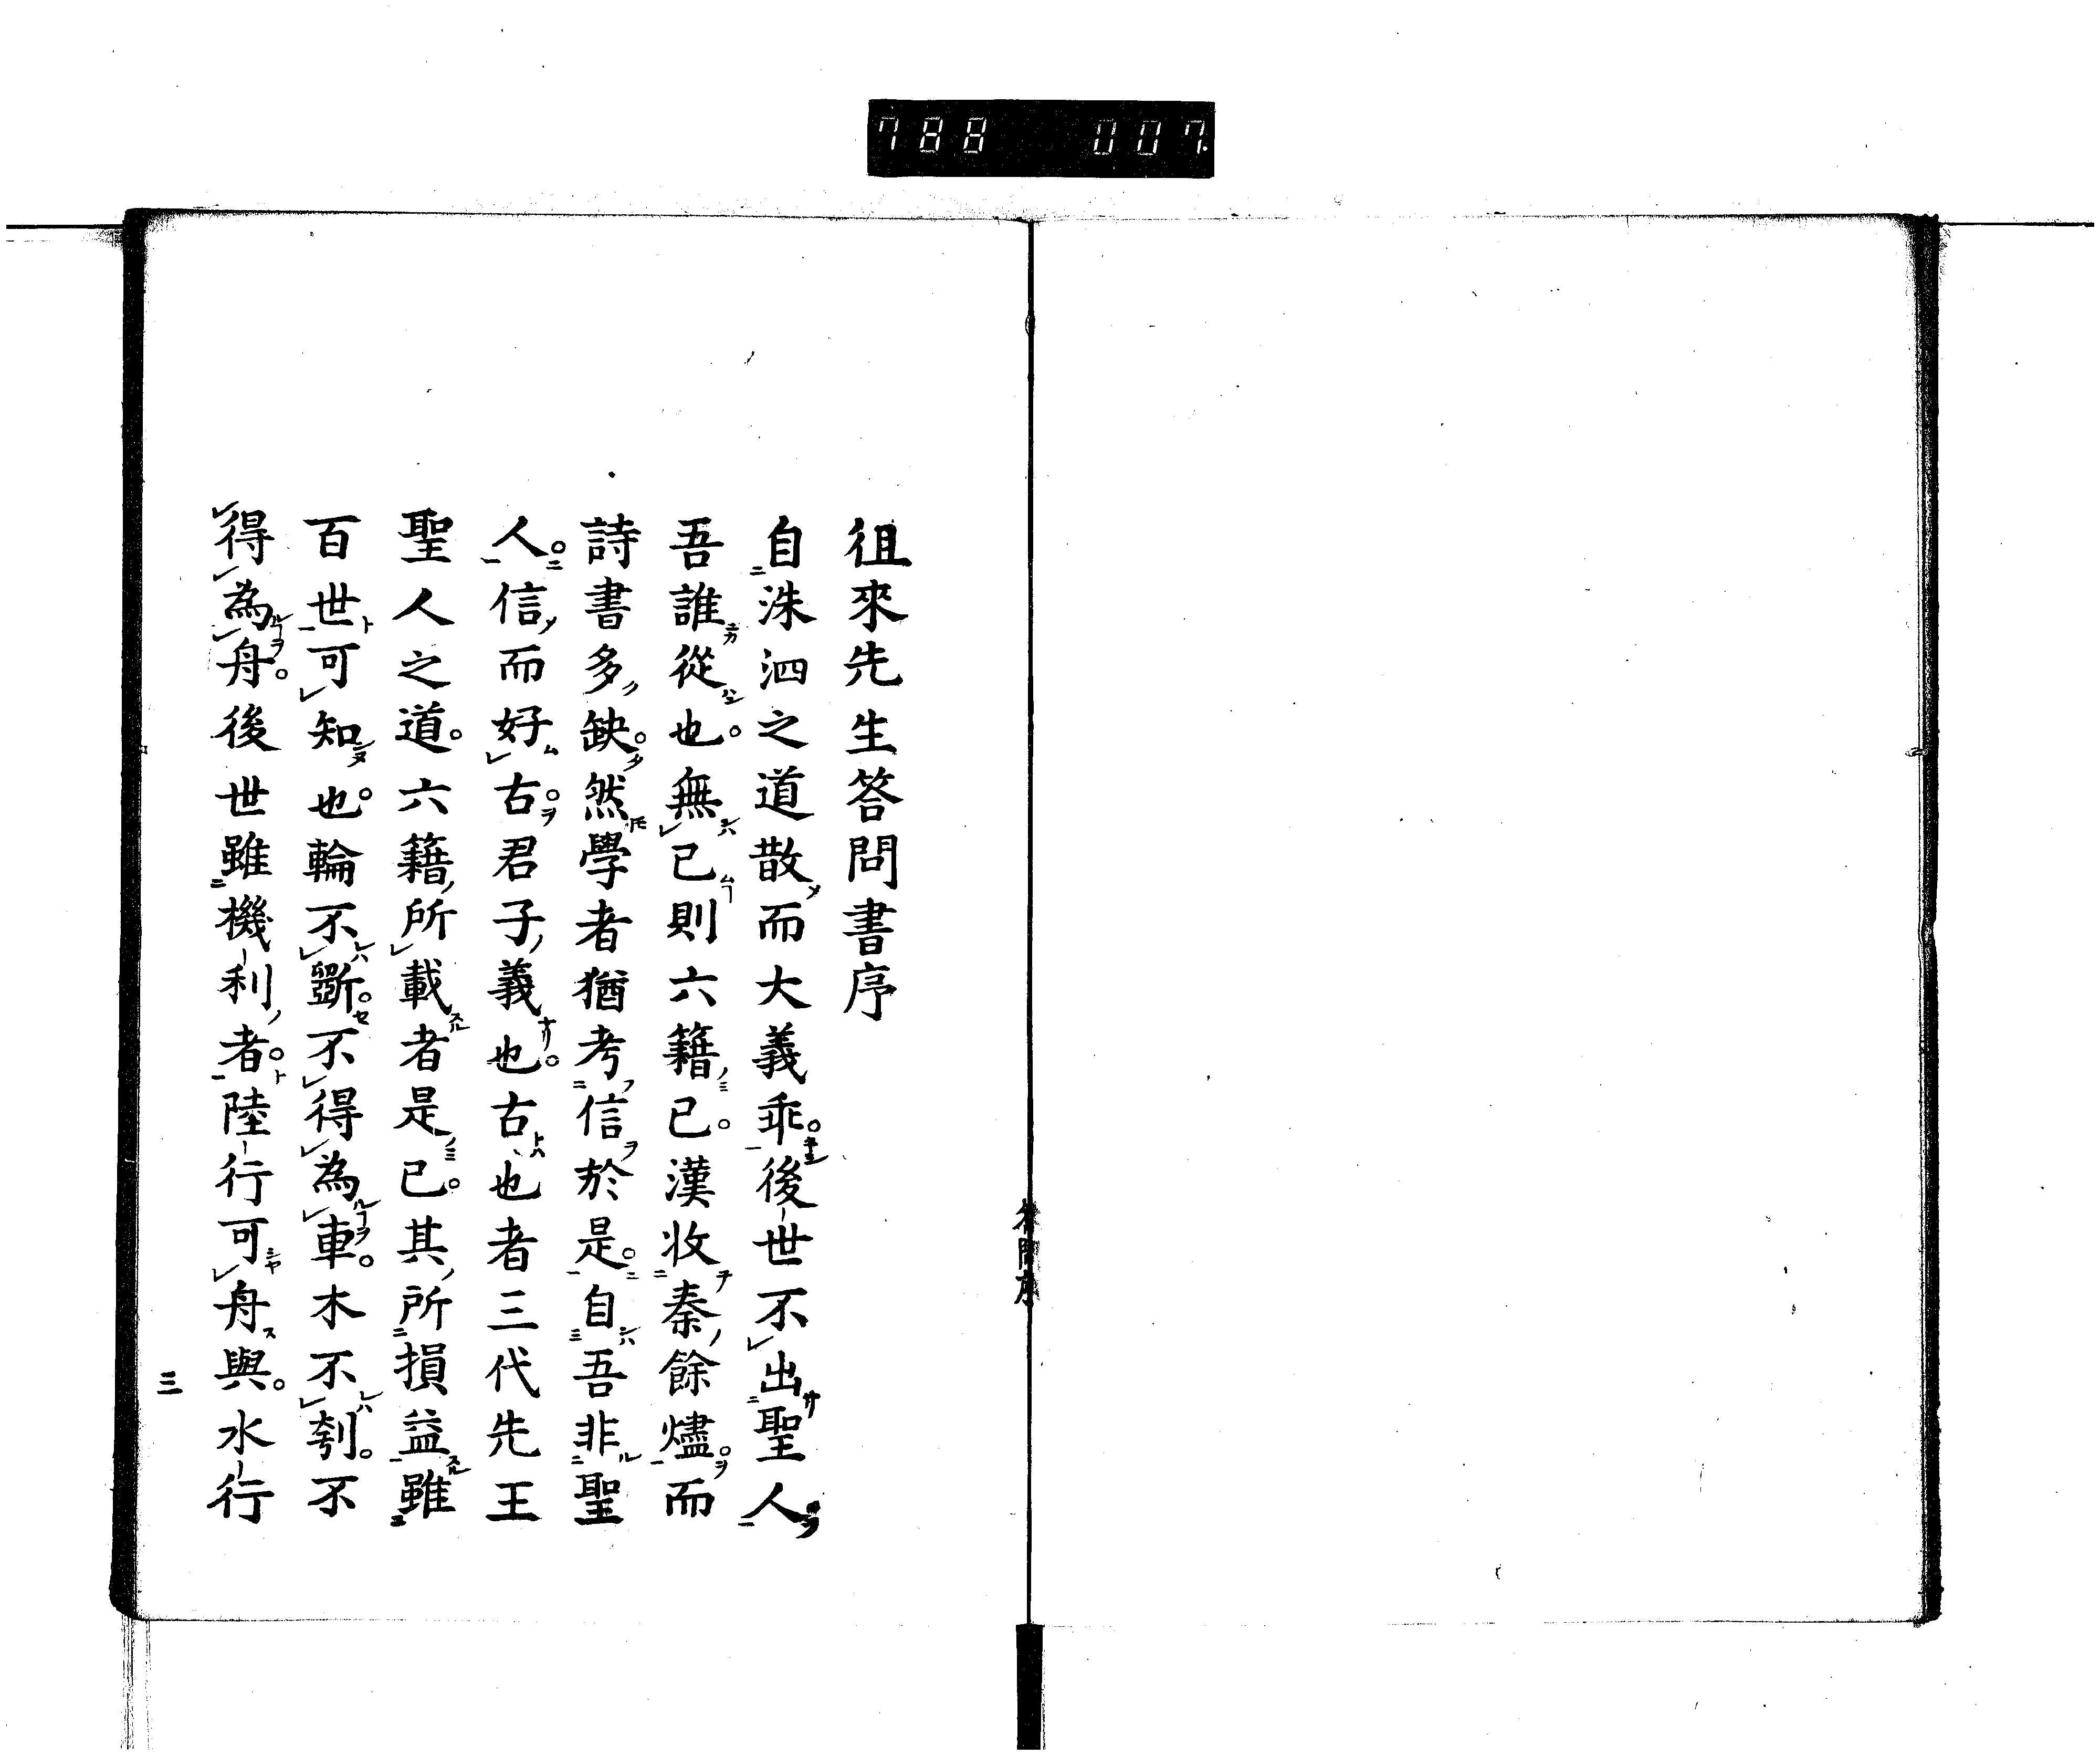 788 007.
徂來先生答問書序
自洙泗之道散而大義乖。後世不出聖人
吾誰從也。無已則六籍已。漢收秦餘燼。而
詩書多缺。然學者猶考信於是。自吾非聖
人。信而好古。君子義也。古也者三代先王
聖人之道。六籍所載者是已。其所損益雖
百世可知也。輪不斲。不得為車。木不刳。不
得為舟。後世雖機利者。陸行可舟與。水行
三
答問序